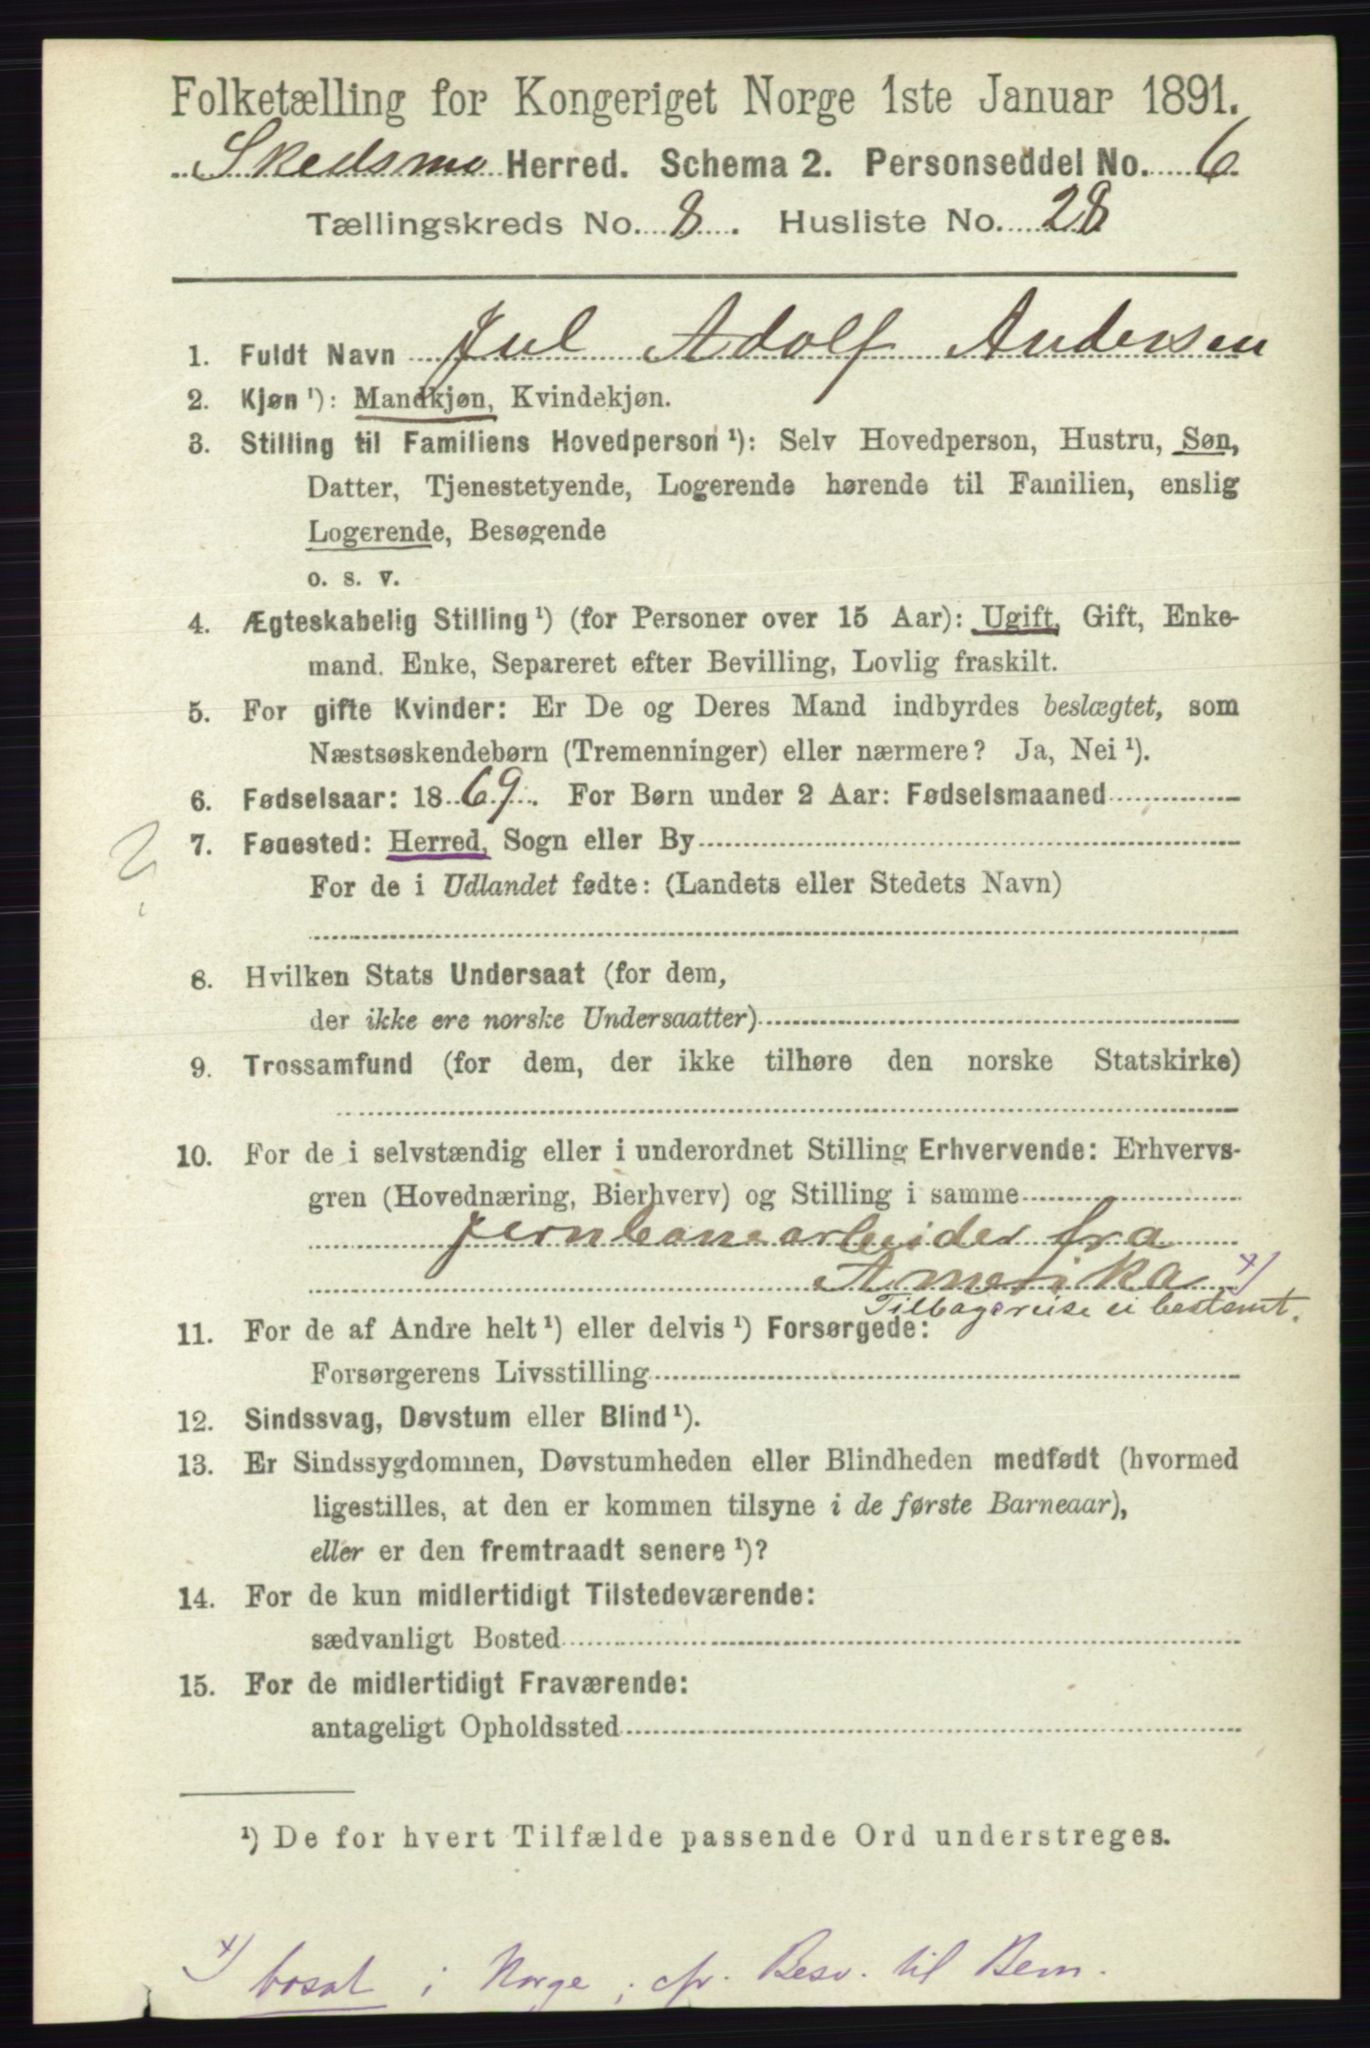 Folketælling for Kongeriget Norge 1ste Januar 1891.
Skedsmo Herred. Schema 2. Personseddel No. 6.
Tællingskreds No. 8. Husliste No. 28
1. Fuldt Navn Jul Adolf Andersen
2. Kjøn ¹): Mandkjøn, Kvindekjøn.
3. Stilling til Familiens Hovedperson ¹): Selv Hovedperson, Hustru, Søn,
Datter, Tjenestetyende, Logerende hørende til Familien, enslig
Logerende, Besøgende
o. s. v.
4. Ægteskabelig Stilling ¹) (for Personer over 15 Aar): Ugift, Gift, Enke-
mand. Enke, Separeret efter Bevilling, Lovlig fraskilt.
5. For gifte Kvinder: Er De og Deres Mand indbyrdes beslægtet, som
Næstsøskendebørn (Tremenninger) eller nærmere? Ja, Nei ¹).
6. Fødselsaar: 1869. For Børn under 2 Aar: Fødselsmaaned
7. Føuested: Herred, Sogn eller By
?
For de i Udlandet fødte: (Landets eller Stedets Navn)
8. Hvilken Stats Undersaat (for dem,
der ikke ere norske Undersaatter)
9. Trossamfund (for dem, der ikke tilhøre den norske Statskirke)
10. For de i selvstændig eller i underordnet Stilling Erhvervende: Erhvervs-
gren (Hovednæring, Bierhverv) og Stilling i samme
Jernbanearbeider fra
Amerika x)
Tilbagereise ei bestemt.
11. For de af Andre helt ¹) eller delvis ¹) Forsørgede:
Forsørgerens Livsstilling
12. Sindssvag, Døvstum eller Blind ¹).
13. Er Sindssygdommen, Døvstumheden eller Blindheden medfødt (hvormed
ligestilles, at den er kommen tilsyne i de første Barneaar),
eller er den fremtraadt senere ¹)?
14. For de kun midlertidigt Tilstedeværende:
sædvanligt Bosted
15. For de midlertidigt Fraværende:
antageligt Opholdssted
¹) De for hvert Tilfælde passende Ord understreges.
x) bosat i Norge; cfr. Besv. til Bem.